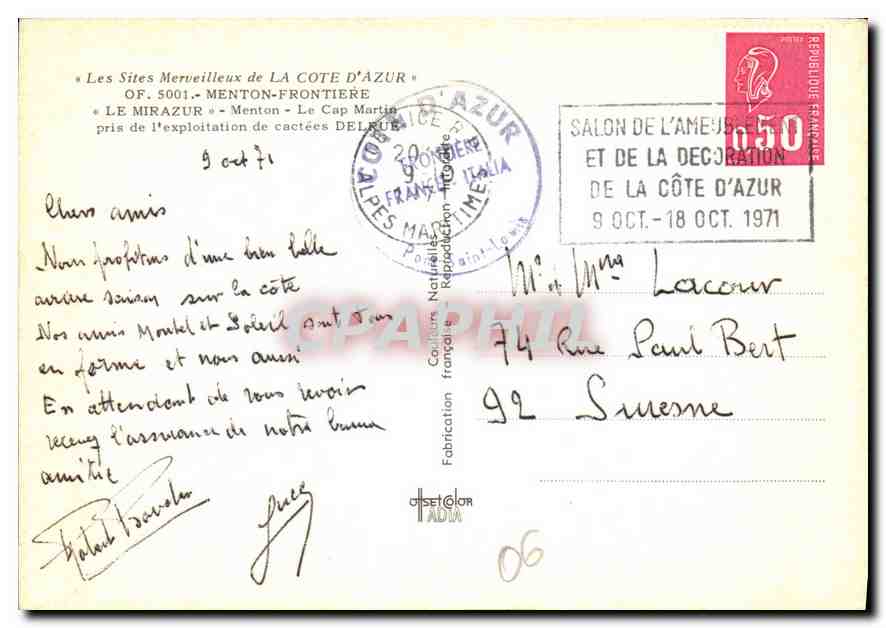 « Les Sites Merveilleux de LA COTE D'AZUR »
OF. 5001.- MENTON-FRONTIERE
« LE MIRAZUR » - Menton - Le Cap Martin
pris de l'exploitation de cactées DELRUE
9 oct 71
Chers amis
Nous profitons d'une bien belle
arrière saison sur la côte
Nos amis Montel et Soleil sont tous
en forme et nous aussi
En attendant de vous revoir
recevez l'assurance de notre bonne
amitié
Robert
Luce
D'AZUR
NICE R
20
9
ALPES MARITIMES
FRONTIÈRE
FRANCE-ITALIA
Pont Saint-Louis
Couleurs Naturelles
Fabrication française - Reproduction interdite
OffsetColor
ADIA
POSTES
REPUBLIQUE FRANCAISE
0,50
SALON DE L'AMEUBLEMENT
ET DE LA DECORATION
DE LA CÔTE D'AZUR
9 OCT. - 18 OCT. 1971
Mr et Mme Lacour
74 Rue Paul Bert
92 Suresne
06
CPAPHIL